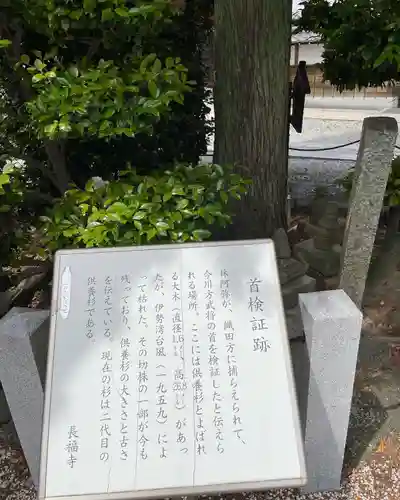 首検証跡
床阿弥が、織田方に捕らえられて、
今川方武将の首を検証したと伝えら
れる場所。ここには供養杉とよばれ
る大木（直径1.6メートル、高
）があっ
たが、伊勢湾台風（一九五九）によ
って枯れた。その切株の一部が今も
残っており、供養杉の大きさと古さ
を伝えている。現在の杉は二代目の
供養杉である。
長福寺